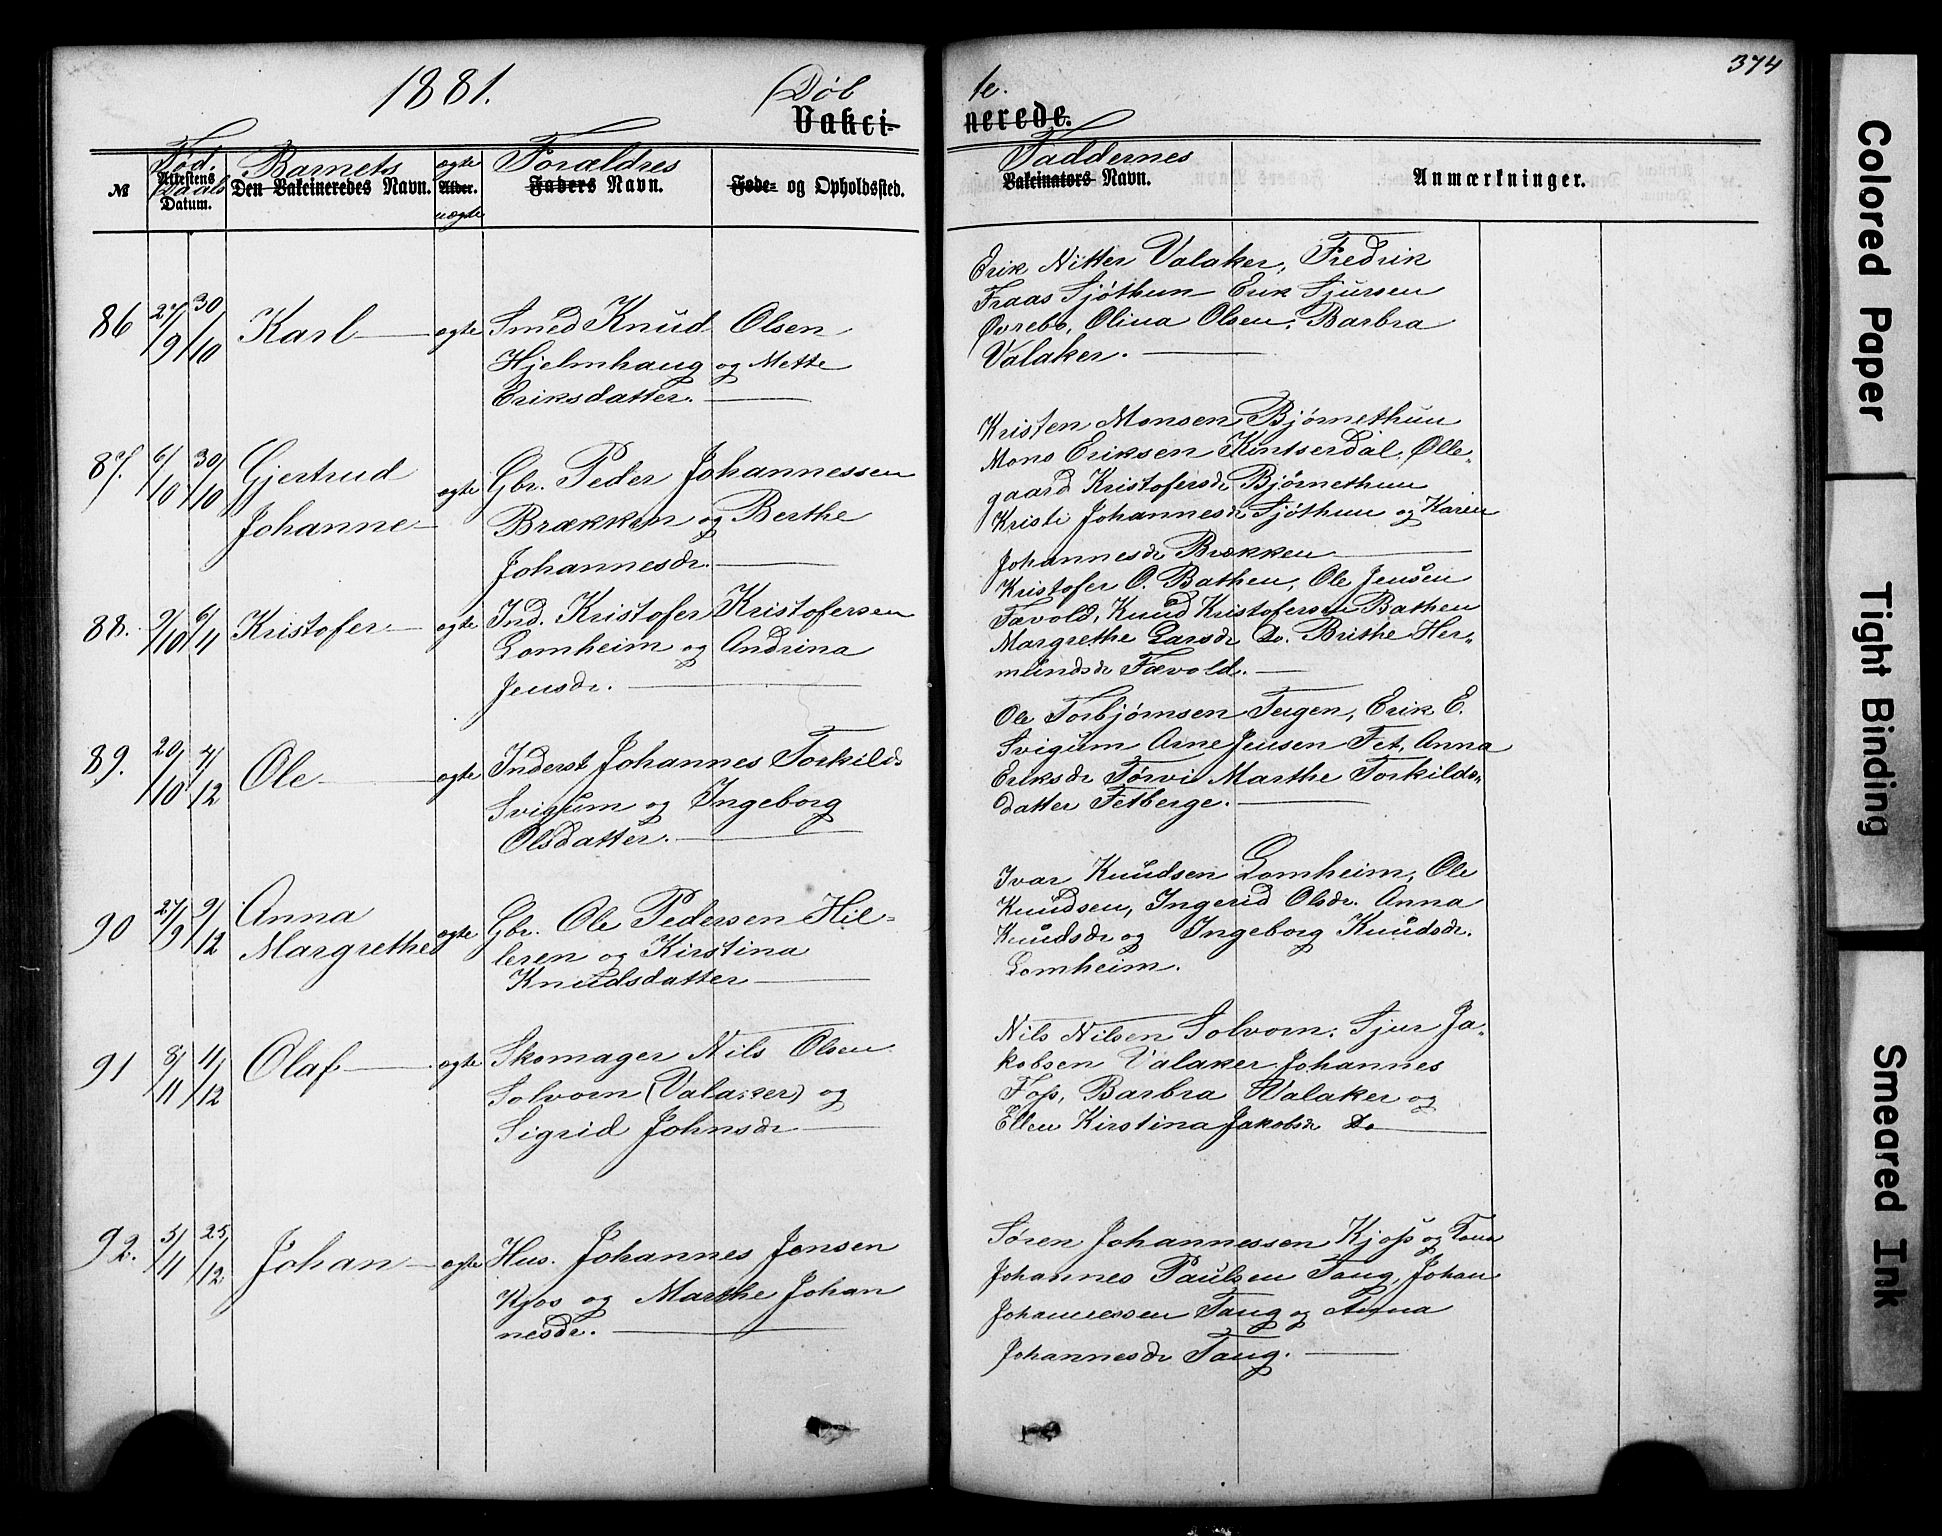 1881.
Døb
te.
374
Vakci-
nerede.
Fød. Daabs
Barnets
ægte
uægte
Forældres
Faddernes
№
Attestens Datum.
Den Vakcineredes Navn.
Alder.
Faders Navn.
Føde- og Opholdssted.
Vakcinators Navn.
Anmærkninger.
86 27/9 30/10 Karl ægte Smed Knud Olsen
Hjelmhaug og Mette
Eriksdatter.
Erik Nitter Valaker, Fredrik
Fraas Sjøthun Erik Sjursen
Øvrebø, Olina Olsen, Barbra
Valaker.
87. 6/10 30/10 Gjertrud
Johanne
ægte Gbr. Peder Johannessen
Brækken og Berthe
Johannesdr.
Kristen Monsen Bjørnethun
Mons Eriksen Kintserdal, Olle-
gaard Kristofersdr Bjørnethun
Kristi Johannesdr Sjøthun og Karen
Johannesdr Brækken
88. 9/10 6/11 Kristofer ægte Ind. Kristofer Kristofersen
Lomheim og Andrina
Jensdr.
Kristofer O. Bathen, Ole Jensen
Fævold, Knud Kristofersen Bathen
Margrethe Larsdr Do. Brithe Her-
mundsdr Fævold.
89. 20/10 4/12 Ole ægte Inderst Johannes Torkilds
Svigum og Ingeborg
Olsdatter.
Ole Torbjørnsen Teigen, Erik E.
Svigum Arne Jensen Fet, Anna
Eriksdr Tørvi Marthe Torkilds-
datter Fetberge.
90 27/9 9/12 Anna
Margrethe
ægte Gbr. Ole Pedersen Hil-
leren og Kirstina
Knudsdatter
Ivar Knudsen Lomheim, Ole
Knudsen, Ingerid Olsdr. Anna
Knudsdr og Ingeborg Knudsdr.
Lomheim.
91 8/11 11/12 Olaf ægte Skomager Nils Olsen
Solvorn (Valaker) og
Sigrid Johnsdr
Nils Nilsen Solvorn, Sjur Ja-
kobsen Valaker Johannes
Foss, Barbra Valaker og
Ellen Kirstina Jakobsdr Do
92. 5/11 25/12 Johan ægte Hus. Johannes Jensen
Kjos og Marthe Johan
nesdr.
Søren Johannessen Kjoss og Kone
Johannes Paulsen Taug, Johan
Johannessen Taug og Anna
Johannesdr Taug.
Colored Paper
Tight Binding
Smeared Ink